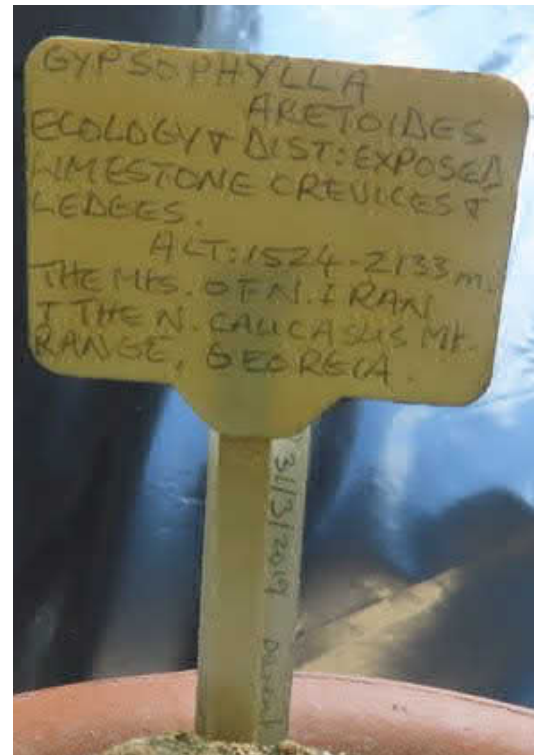 GYPSOPHYLLA
ARETOIDES
ECOLOGY & DIST: EXPOSED
LIMESTONE CREVICES &
LEDGES.
ALT: 1524-2133 m.
THE MTS. OF N. IRAN
& THE N. CAUCASUS Mt.
RANGE, GEORGIA.
31/3/2019